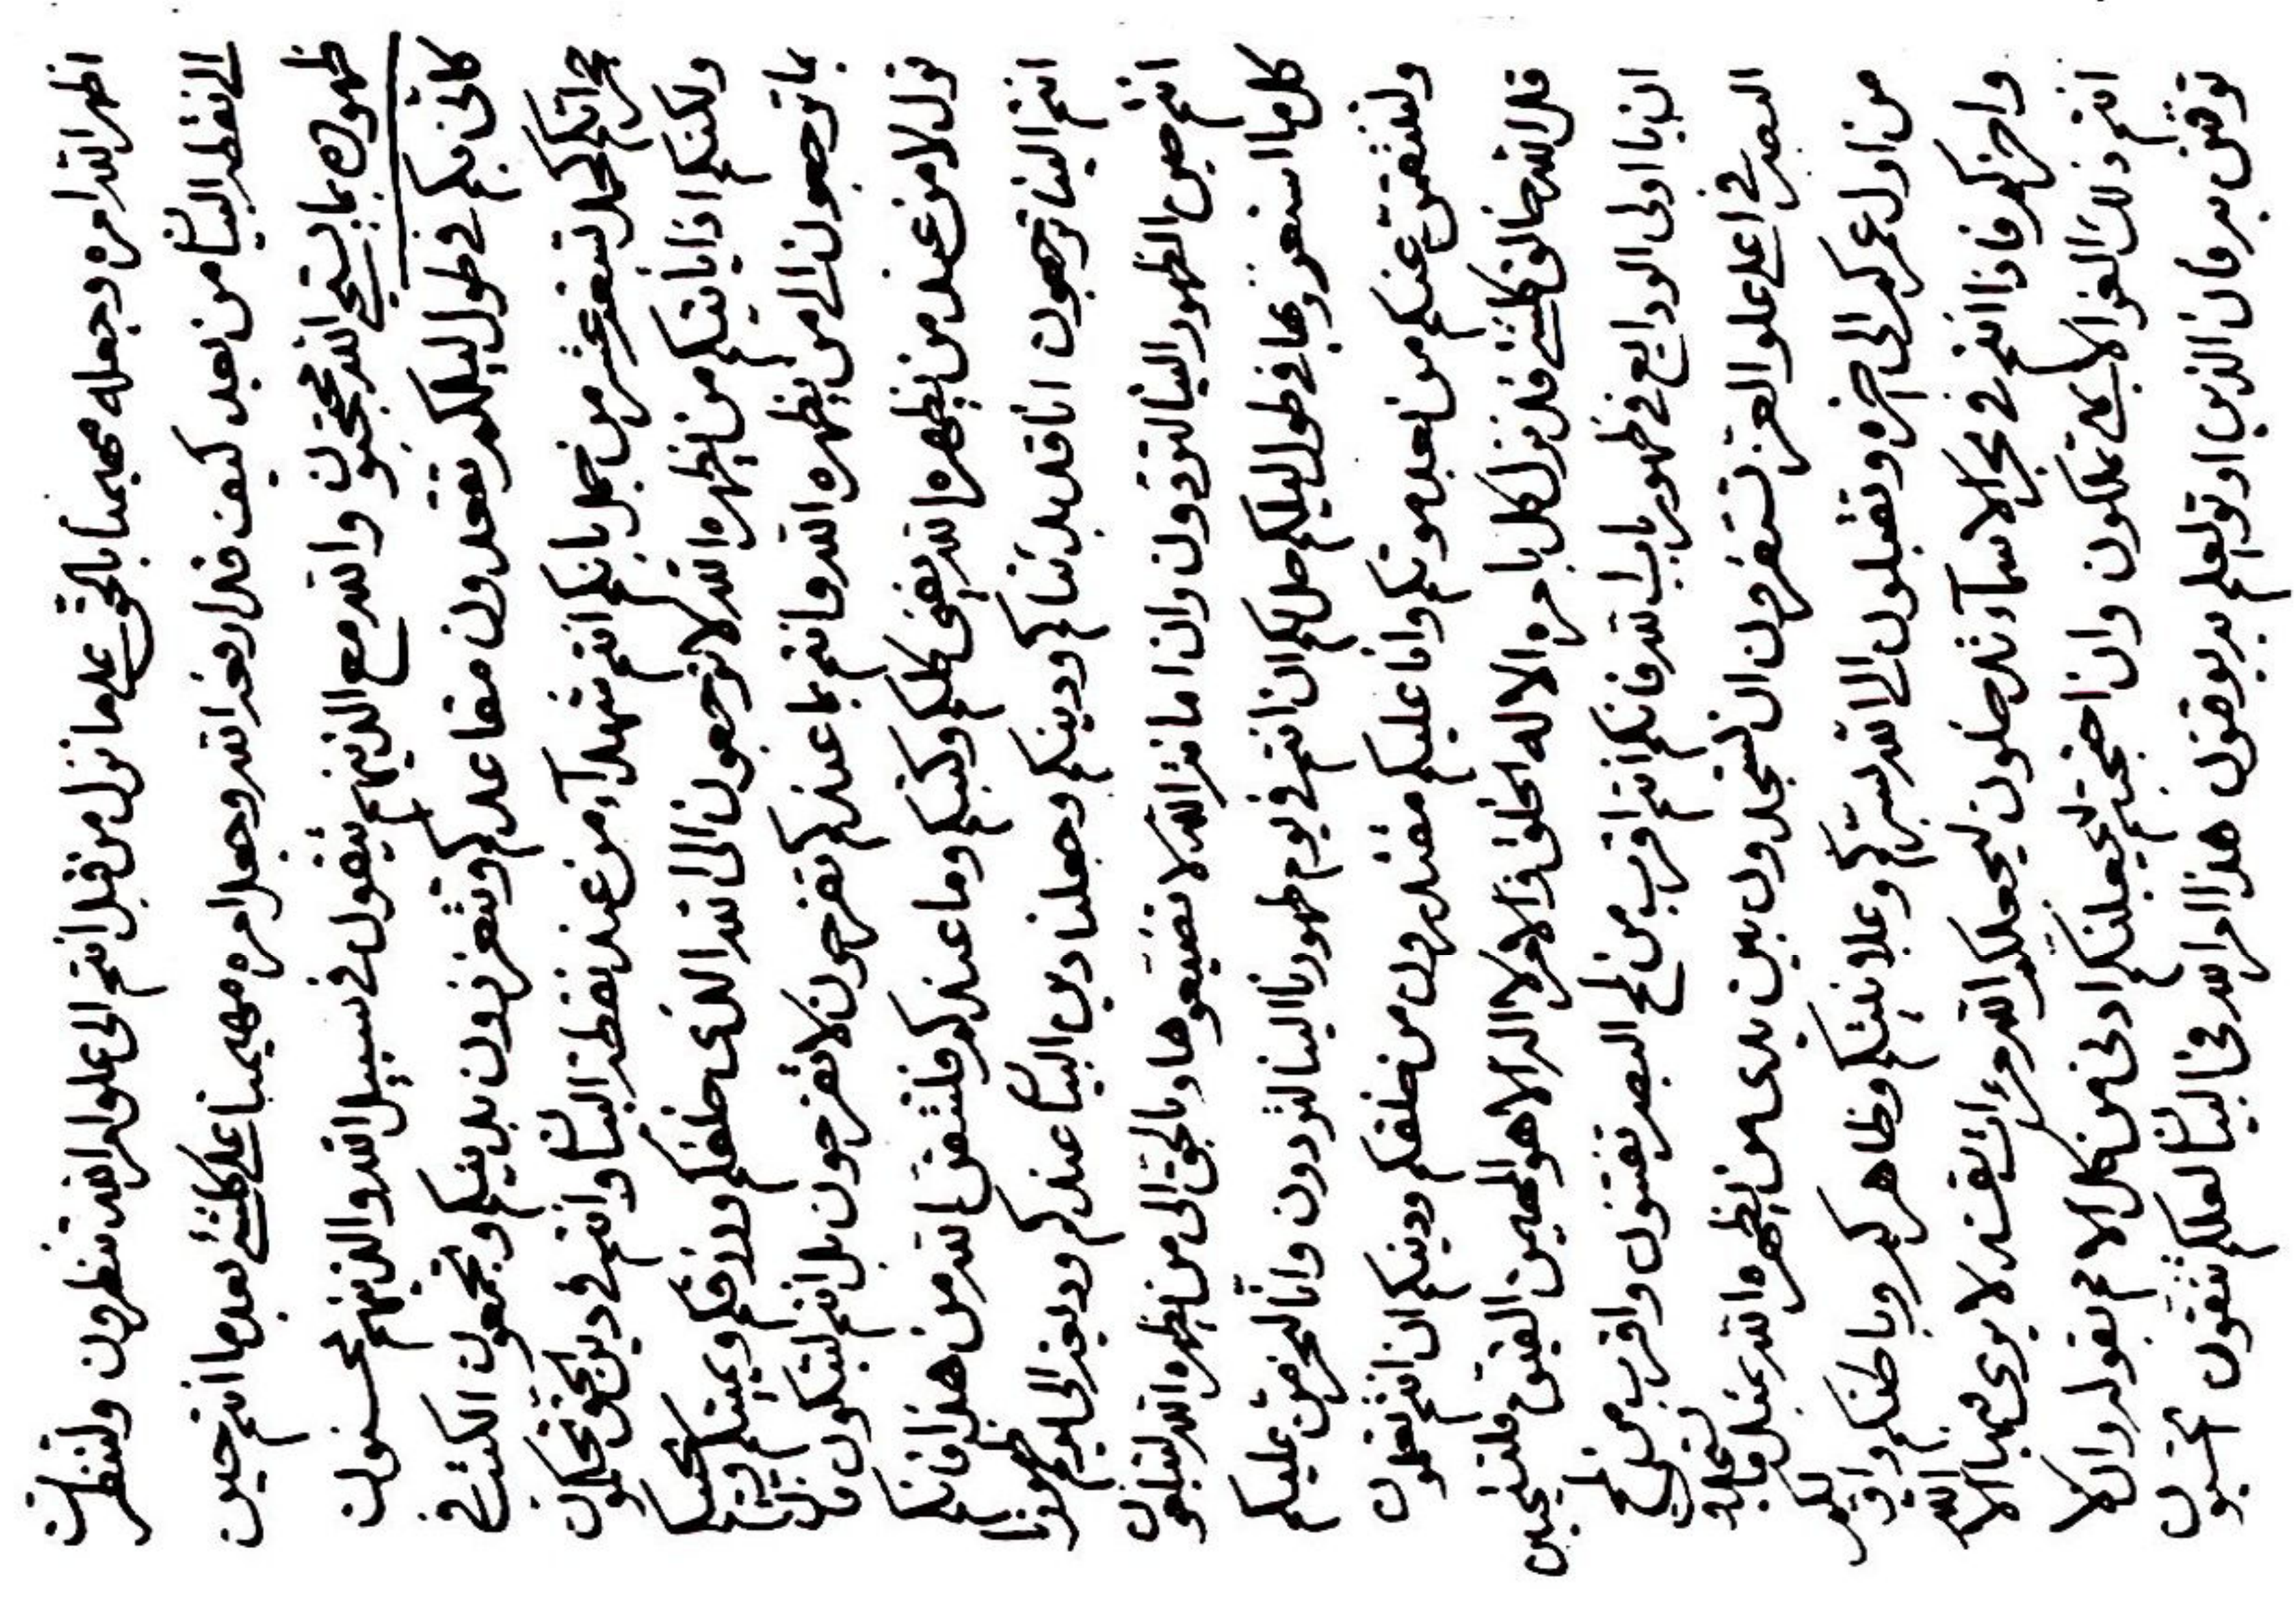 اظهر الله امره وجعله مهيمنا بالحق على ما نزل من قبل انتم الى علو امر الله تنظرون ولتنظرن
الى نقطة البيان من بعد كيف قد ارفعه الله وجعل امره مهيمنا على كلشئ بعد ما انتم حين
ظهوره بما يستحيي الله محتجبون والله مع الذينهم يتقون في سبيل الله والذينهم محسنون
كانى بكم في طول ليلكم تقعدون مقاعدكم وتتعززون بدينكم وتجمعون الكتب في
حجراتكم تسعة عشر من جبل بانكم انتم شهدآء من عند نقطة البيان وانتم في دين الحق تحكمون
ولكنكم اذا ياتيكم من يظهره الله لا ترجعون الى الله الذى خلقكم ورزقكم ويميتكم ويحييكم
بما ترجعون الى من يظهره الله وانتم بما عندكم تفرحون لا تفرحون بل انتم لتبكون فان
نزل لا من عند من يظهره الله يفنى كلكم وكتبكم وما عندكم فلتتقن الله من هذا فانكم
انتم الينا ترجعون انا قد بدئناكم ودينكم وجعلنا دين البيان عندكم وديعة الى يوم ظهورنا
انتم حين الظهور الينا لتردون وان امانة الله لا تضيعوها وبالحق الى من يظهره الله لتبلغون
كل ما استعززتم بها في طول ليلكم حل لكم ان انتم في يوم ظهورنا الينا لتردون وانا لنحرمن عليكم
ولننتقمن عنكم من بعد موتكم وانا عليكم مقتدرون من خلقكم ودينكم ان انتم تعلمون
قل الله خالق كلشئ قد نزل كل بامره الا له الخلق والامر لا اله الا هو المهيمن القيوم فلتستحيين
ان يا اولى الودايع في ظهور باب الله فانكم انتم اقرب من لمح البصر تفتنون واقرب من لمح
البصر في اعلى علو العز تستقرون ان تسجدون بين يدى من يظهره الله بمثل ما
من اول عمركم الى اخره وتقبلون الى الله بسركم وعلانيتكم وظاهركم وباطنكم واولكم
واخركم فاذا انتم في بحر الاسمآء تدخلون ليجعلكم الله مرات نفسه لا يرى فيها الا الله
انتم ذلك العز الابهى تملكون وان احتجبتم ليجعلنكم ادنى من كل الامم بقوله وان لا
توقنن به فان الذين اوتو العلم به يوقنون هذا امر الله في البيان لعلكم تتقون